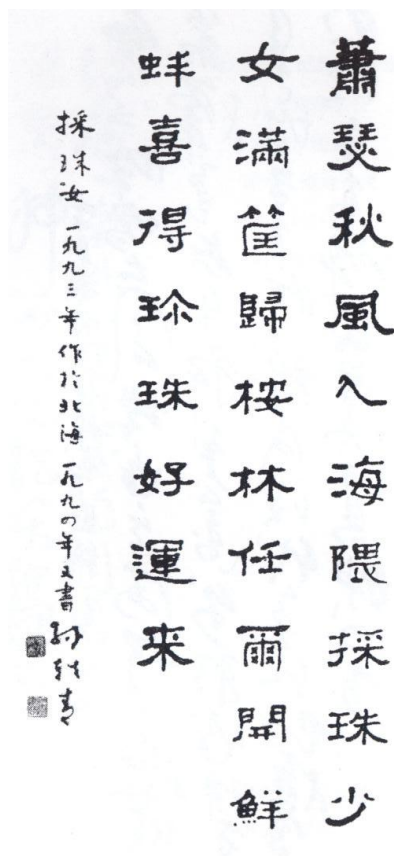 蕭瑟秋風入海隈採珠少
女滿筐歸桉林任爾開鮮
蚌喜得珎珠好運来
採珠女 一九九三年作於北海 一九九四年又書 孫軼青